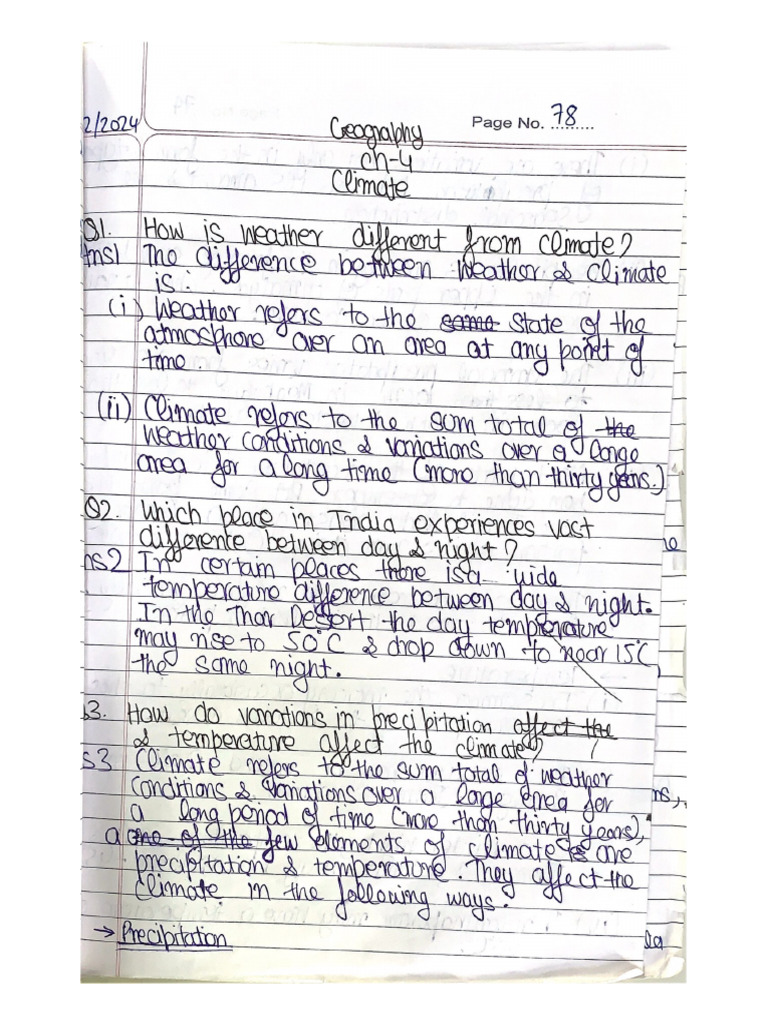 Page No. 78
2/2024
Geography
Ch-4
Climate
Q1. How is weather different from climate?
Ans1 The difference between weather & climate
is :
(i) Weather refers to the same State of the
atmosphere over an area at any point of
time
(ii) Climate refers to the sum total of the
weather conditions & variations over a large
area for a long time (more than thirty years.)
Q2. Which place in India experiences vast
differente between day & night?
ns2 In certain places there is a wide
temperature difference between day & night.
In the Thar Desert the day temperature
may rise to 50°C & drop down to near 15°C
the same night.
3. How do variations in precipitation affect the
& temperature affect the climate?
s3 Climate refers to the sum total of weather
conditions & variations over a large area for
a long period of time (more than thirty years),
a one of the few elements of climate is are
precipitation & temperature. They affect the
climate in the following ways.
→ Precipitation